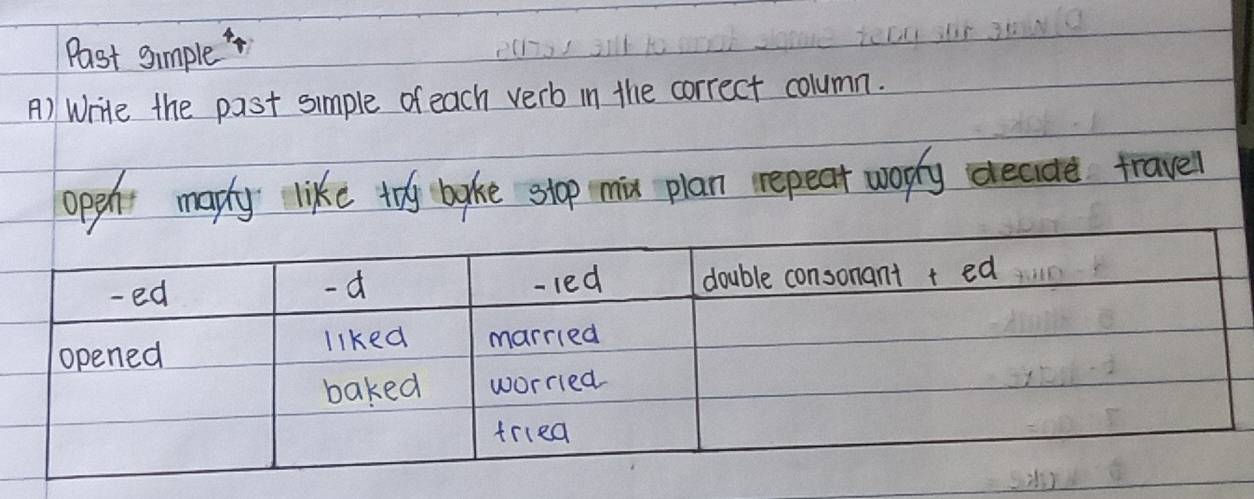 Past simple
A) Write the past simple of each verb in the correct column.
open marry like try bake stop mix plan repeat worry decide travel
-ed -d -ied double consonant + ed
opened liked married
baked worried
tried